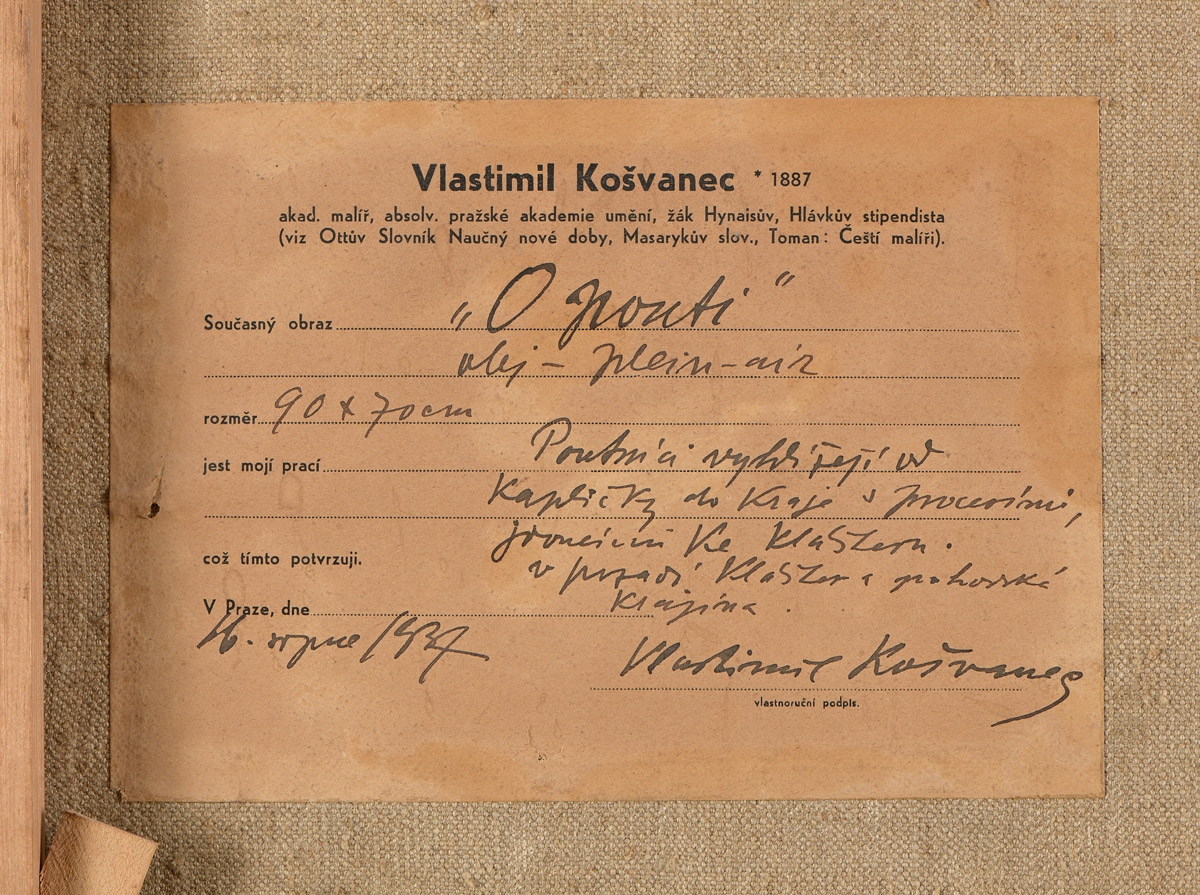 Vlastimil Košvanec * 1887
akad. malíř, absolv. pražské akademie umění, žák Hynaisův, Hlávkův stipendista
(viz Ottův Slovník Naučný nové doby, Masarykův slov., Toman: Čeští malíři).
Současný obraz „O pouti"
olej – plein-air
rozměr 90 x 70 cm
jest mojí prací Poutníci vyhlížejí od
kapličky do kraje s procesími,
jdoucími ke klášteru.
což tímto potvrzuji.
v pozadí klášter a pohorská
krajina.
V Praze, dne
16. srpna 1937
Vlastimil Košvanec
vlastnoruční podpis.